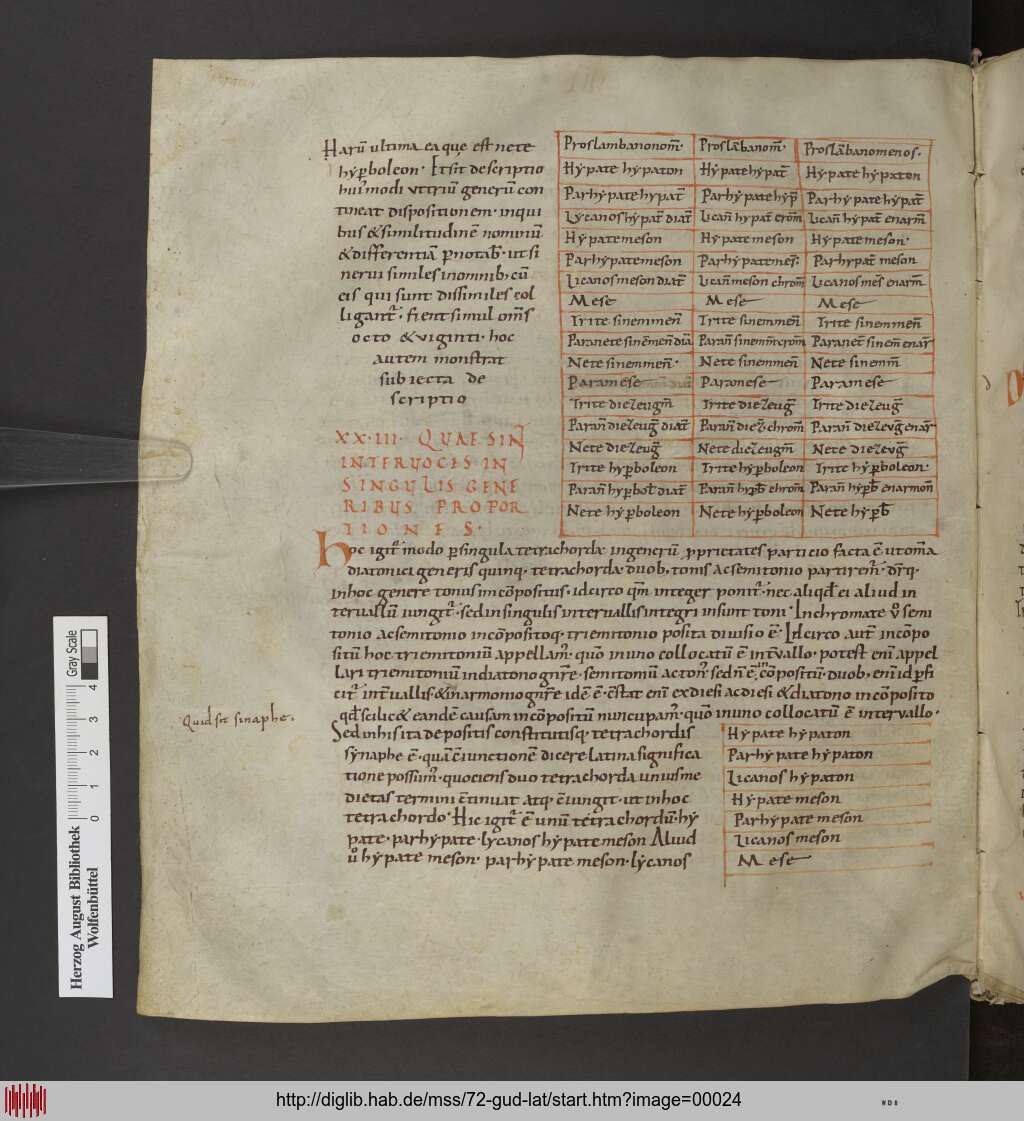 Harū ultima ea que est nete
hyꝑboleon. Et sit descriptio
hui'modi vt triū generū con
tineat dispositionem. in qui
bus & similitudinē nominū
& differentiā p̄notab'. ut si
nerui similes in omnib; cū
eis qui sunt dissimiles col
ligant᷑. fient simul om̄s
octo & viginti. hoc
autem monstrat
subiecta de
scriptio
Proslambanonom̄. Proslābanom̄. Proslābanomenos.
Hypate hypaton Hypate hypat̄ Hypate hypaton
Parhypate hypat̄ Parhypate hyp̄ Parhypate hypat̄
Lycanos hypat̄ diat̄ Lican̄ hypat̄ crom̄ Lican̄ hypat̄ enarm̄
Hypate meson Hypate meson Hypate meson.
Parhypate meson Parhypate mes̄. Parhypat̄ meson
Licanos meson diat̄ Lican̄ meson chrom̄ Licanos mes̄ enarm̄
Mese Mese Mese
Trite sinemmen̄ Trite sinemmen̄ Trite sinemmen̄
Paranete sinēmen̄ diā Paran̄ sinemm̄ crom̄ Paranet̄ sinem̄ enar̄
Nete sinemmen̄. Nete sinemmen̄ Nete sinemm̄
Paramese Paramese Paramese
Trite diezeugm̄ Trite diezeug̅ Trite diezeug̅
Paran̄ diezeug̅ diat̄ Paran̄ diez̄ chrom̄ Paran̄ diezeug̅ enar̄
Nete diezeug̅ Nete diezeugm̄ Nete diezeug̅
Trite hyꝑboleon Trite hyꝑboleon Trite hyꝑboleon.
Paran̄ hyꝑbol̄ diat̄ Paran̄ hyꝑb̄ chrom̄ Paran̄ hyꝑb̄ enarmon̄
Nete hyꝑboleon Nete hyꝑboleon Nete hyꝑb̄
XX.III. QUAE SIN
INTER VOCES IN
SINGULIS GENE
RIBUS PROPOR
TIONES.
Hoc igit᷑ modo ꝑ singula tetrachorda in generū ꝓprietates partitio facta ē. ut om̄a
diatonici generis quinq. tetrachorda duob, tonis ac semitonio partirem᷑. dr̄q.
in hoc genere tonus incōpositus. idcirco qm̄ integer ponit᷑. nec aliqd̄ ei aliud in
teruallū iungit᷑. sed in singulis interuallis integri insunt toni. In chromate v̊ semi
tonio ac semitonio incōpositoq. triemitonio posita diuisio ē. Idcirco aut̄ incōpo
sitū hoc triemitoniū appellam᷒. quō in uno collocatū ē int̄vallo. potest eni appel
lari triemitoniū in diatono gn̄re. semitoniū ac ton᷒. sed n̄ ē incōpositū. duob, eni id ꝑfi
cit᷑ int̄uallis. & in armonio gn̄re idē ē. cstat eni ex diesi ac diesi & ditono incōposito
qd̄ scilic& eandē causam incōpositū nuncupam᷒. quō in uno collocatū ē interuallo.
Quid sit sinaphe.
Sed in his ita depositis constitutisq. tetrachordis
synaphe ē. quā ciunctionē dicere latina significa
tione possim᷒. quociens duo tetrachorda unius me
dietas termini ctinuat atq. ciungit. ut in hoc
tetrachordo. Hic igit᷑ ē unū tetrachordū. hy
pate. parhypate. lycanos hypate meson Aliud
v̊ hypate meson. parhypate meson. lycanos
Hypate hypaton
Parhypate hypaton
Licanos hypaton
Hypate meson
Parhypate meson
Licanos meson
Mese
Herzog August Bibliothek
Wolfenbüttel
Gray Scale
0 1 2 3 4
http://diglib.hab.de/mss/72-gud-lat/start.htm?image=00024